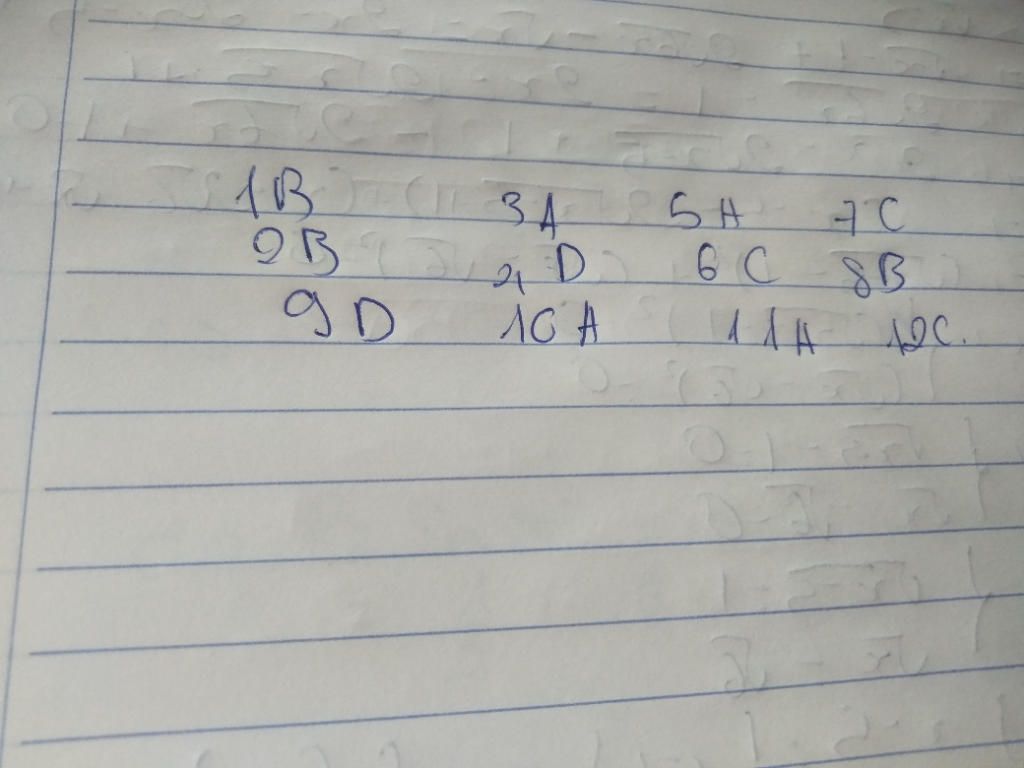 1B 3A 5A 7C
2B 4D 6C 8B
9D 10A 11A 12C.